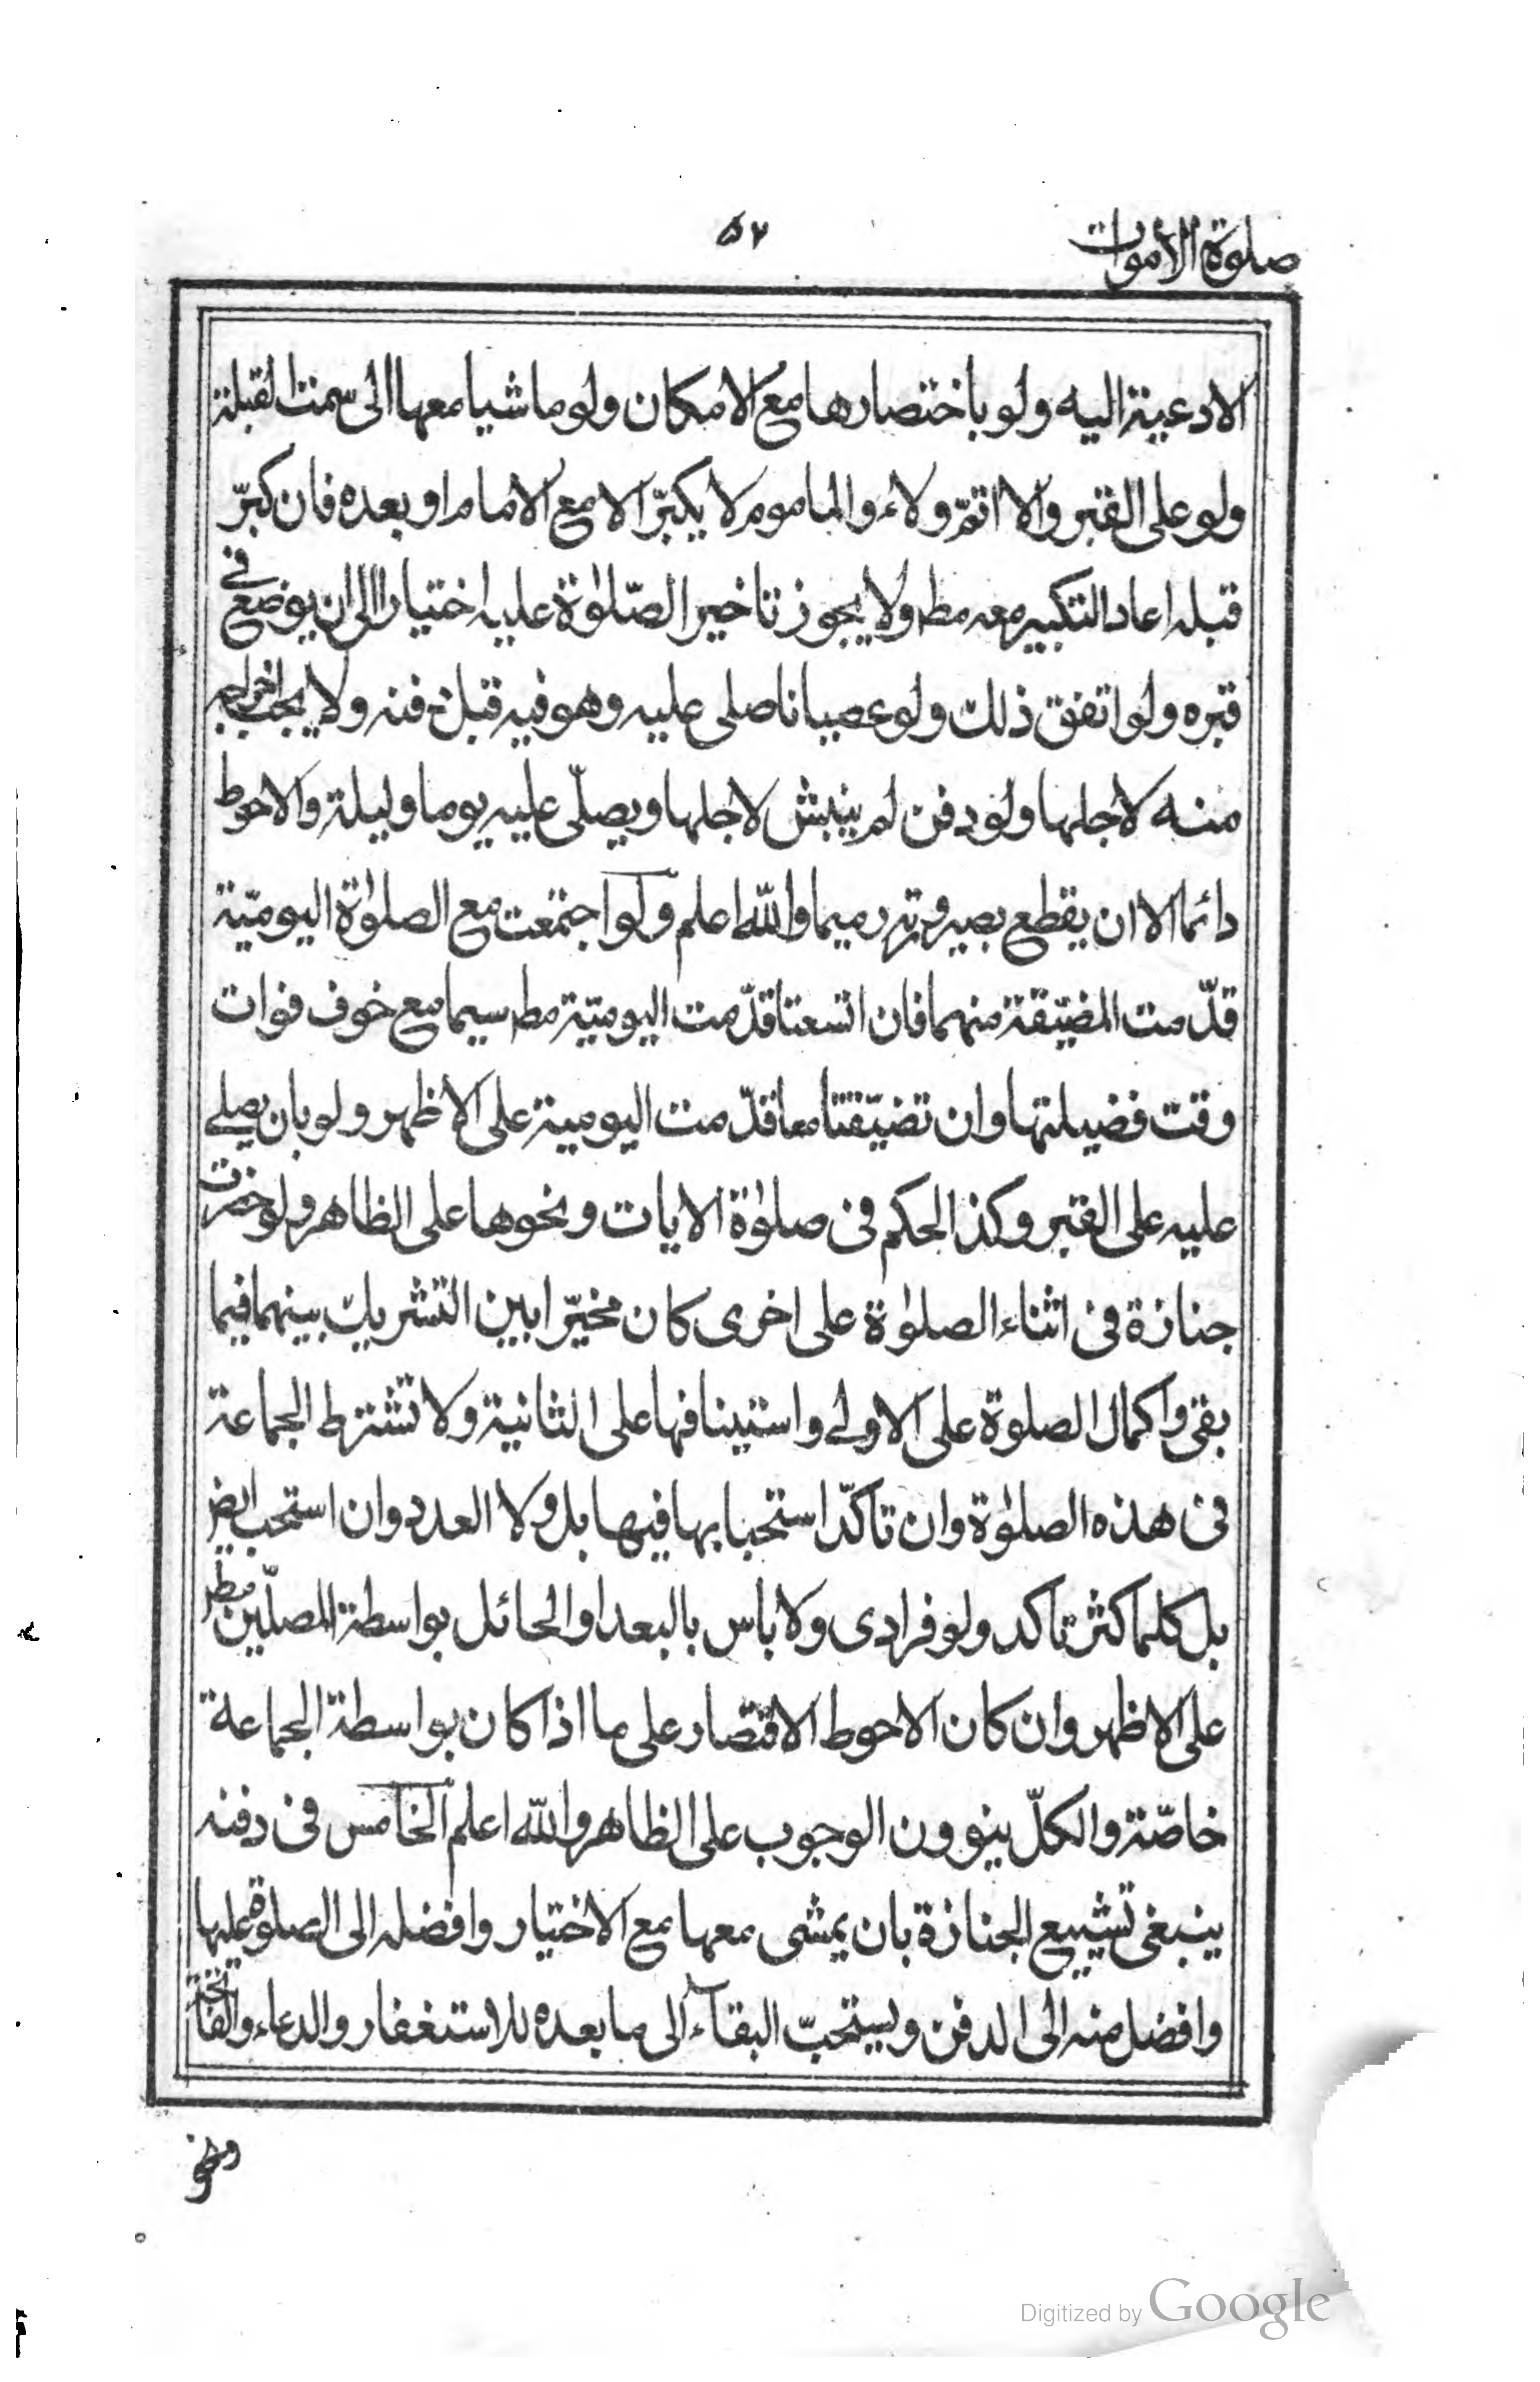 صلوة الأموات
٥٢
الادعية اليه ولو باختصارها مع الامكان ولو ماشيا معها الى سمت القبلة
ولو على القبر والا اتمّ ولاء والماموم لا يكبّر الا مع الامام او بعده فان كبّر
قبله اعاد التكبير معه مط ولا يجوز تاخير الصّلوٰة عليه اختيارا الى ان يوضع في
قبره ولو اتفق ذلك ولو عصيانا صلى عليه وهو فيه قبل دفنه ولا يجب اخراجه
منه لاجلها ولو دفن لم ينبش لاجلها ويصلّى عليه يوما وليلة والاحوط
دائما الا ان يقطع بصيرورته رميما والله اعلم ولو اجتمعت مع الصلوٰة اليوميّة
قدّمت المضيّقة منهما فان اتسعتا قدّمت اليوميّة مط سيما مع خوف فوات
وقت فضيلتها وان تضيّقتا معا قدّمت اليومية على الاظهر ولو بان يصلے
عليه على القبر وكذا الحكم فى صلوٰة الايات ونحوها على الظاهر ولو حضرت
جنازة فى اثناء الصلوٰة على اخرى كان مخيّرا بين التشريك بينهما فيما
بقى واكمال الصلوة على الاولے واستينافها على الثانية ولا تشترط الجماعة
فى هذه الصلوٰة وان تاكّد استحبابها فيها بل ولا العدد وان استحب ايض
بل كلما كثر تاكد ولو فرادى ولا باس بالبعد او الحائل بواسطة المصلّين مط
على الاظهر وان كان الاحوط الاقتصار على ما اذا كان بواسطة الجماعة
خاصّة والكلّ ينوون الوجوب على الظاهر والله اعلم الخامس فى دفنه
ينبغى تشييع الجنازة بان يمشى معها مع الاختيار وافضله الى الصلوة عليها
وافضل منه الى الدفن ويستحبّ البقآء الى ما بعده للاستغفار والدعاء والفاتحة
ونحو
Digitized by Google